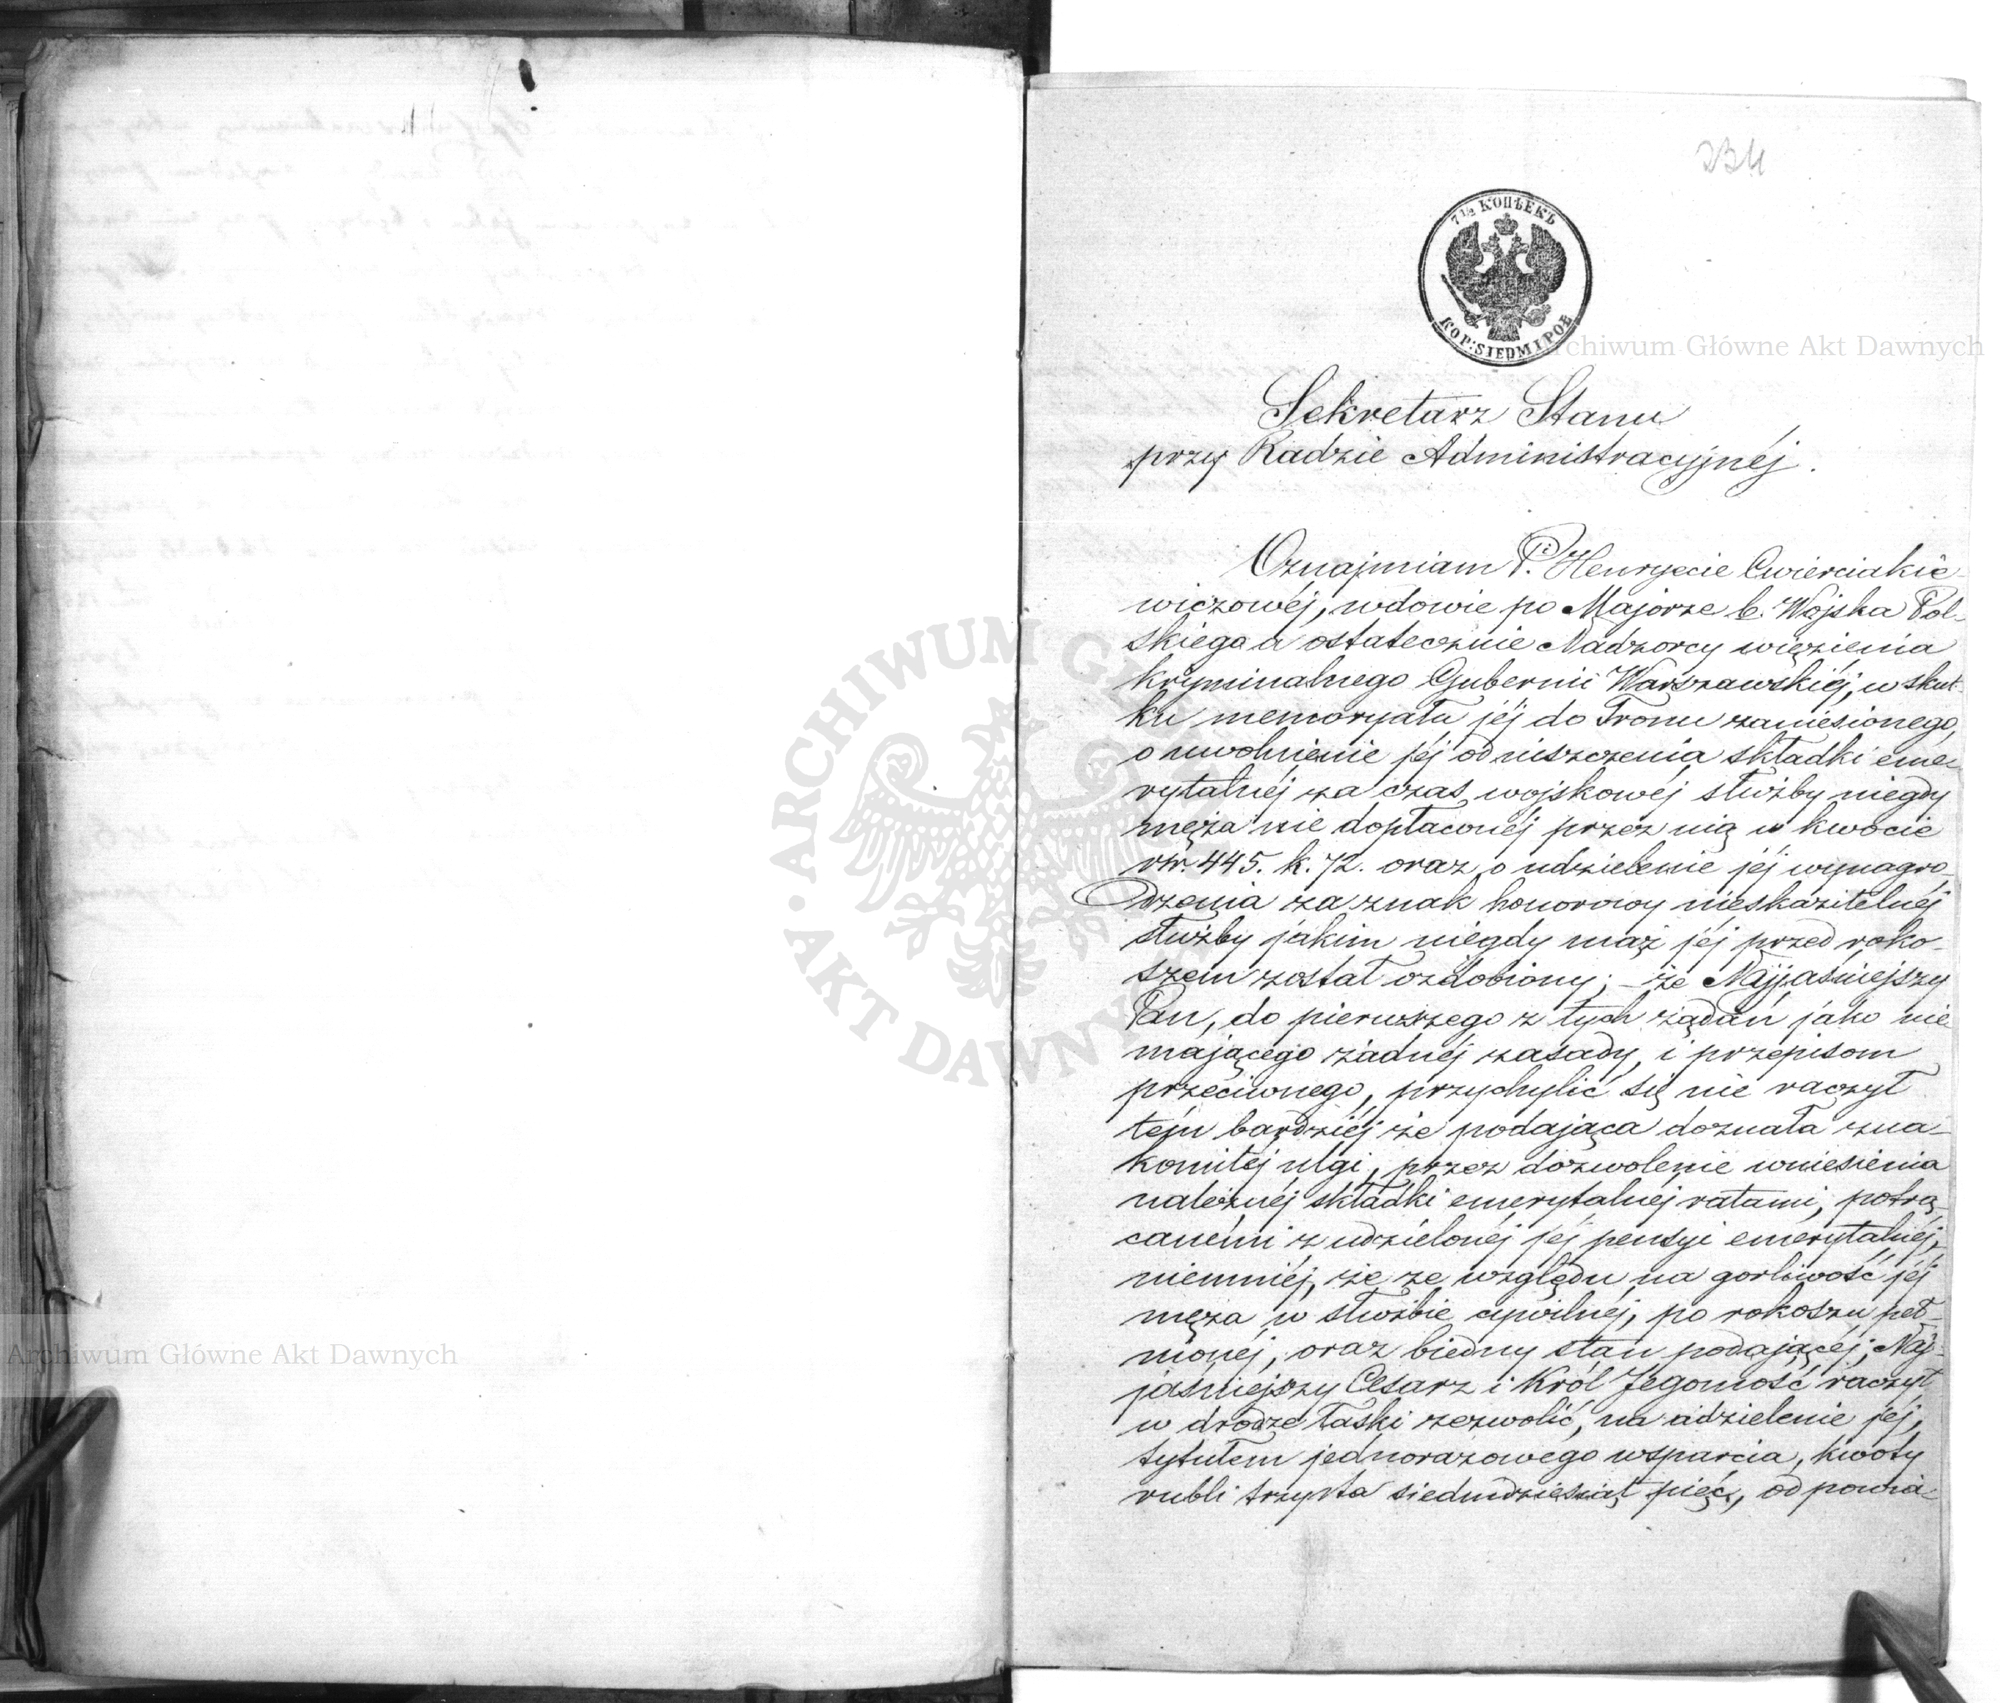 234
7½ КОПѢЕКЪ
KOP: SIEDM I POŁ
Sekretarz Stanu
przy Radzie Administracyjnéj.
Oznajmiam P.i Henryecie Cwierciakie-
wiczowéj, wdowie po Majorze b. Wojska Pol-
skiego a ostatecznie Nadzorcy więzienia
kryminalnego Gubernii Warszawskiéj, w skut-
ku memoryału jéj do Tronu zaniesionego,
o uwolnienie jéj od uiszczenia składki eme-
rytalnéj za czas wojskowéj służby niegdy
męża nie dopłaconéj przez nią w kwocie
rsr. 445. k. 72. oraz o udzielenie jéj wynagro-
dzenia za znak honorowy nieskazitelnéj
służby jakim niegdy mąż jéj przed roko-
szem został ozdobiony; – że Najjaśniejszy
Pan, do pierwszego z tych żądań jako nie
mającego żadnéj zasady, i przepisom
przeciwnego, przychylić się nie raczył
tém bardziéj że podająca doznała zna-
komitéj ulgi, przez dozwolenie wniesienia
należnéj składki emerytalnéj ratami, potrą-
canémi z udzielonéj jéj pensyi emerytalnéj,
niemniéj, że ze względu na gorliwość jéj
męża w służbie cywilnéj, po rokoszu peł-
nionéj, oraz biedny stan podającéj, Naj-
jaśniejszy Cesarz i Król Jegomość raczył
w drodze łaski zezwolić, na udzielenie jéj,
tytułem jednorazowego wsparcia, kwoty
rubli trzysta siedmdziesiąt pięć, odpowia-
Archiwum Główne Akt Dawnych
Archiwum Główne Akt Dawnych